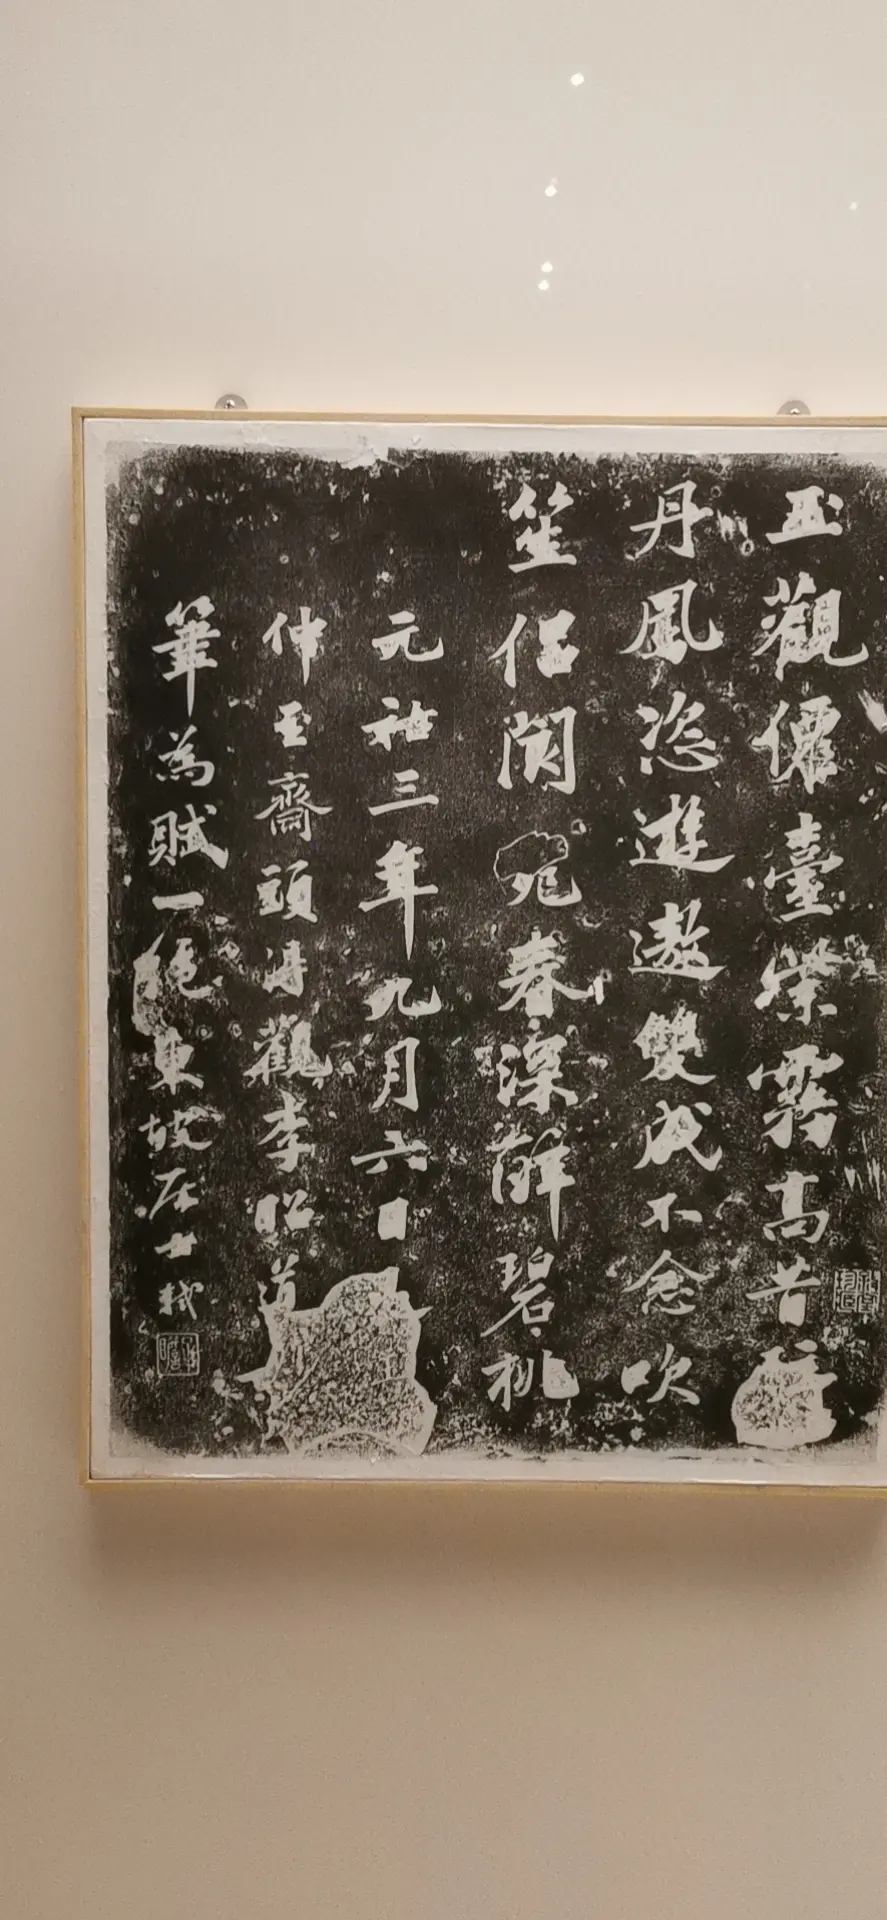 玉觀僊臺紫霧高昔
丹鳳恣遊遨雙成不念吹
笙侣閬苑春深醉碧桃
元祐三年九月六日
仲至齋頭得觀李昭道
筆為賦一絶東坡居士軾